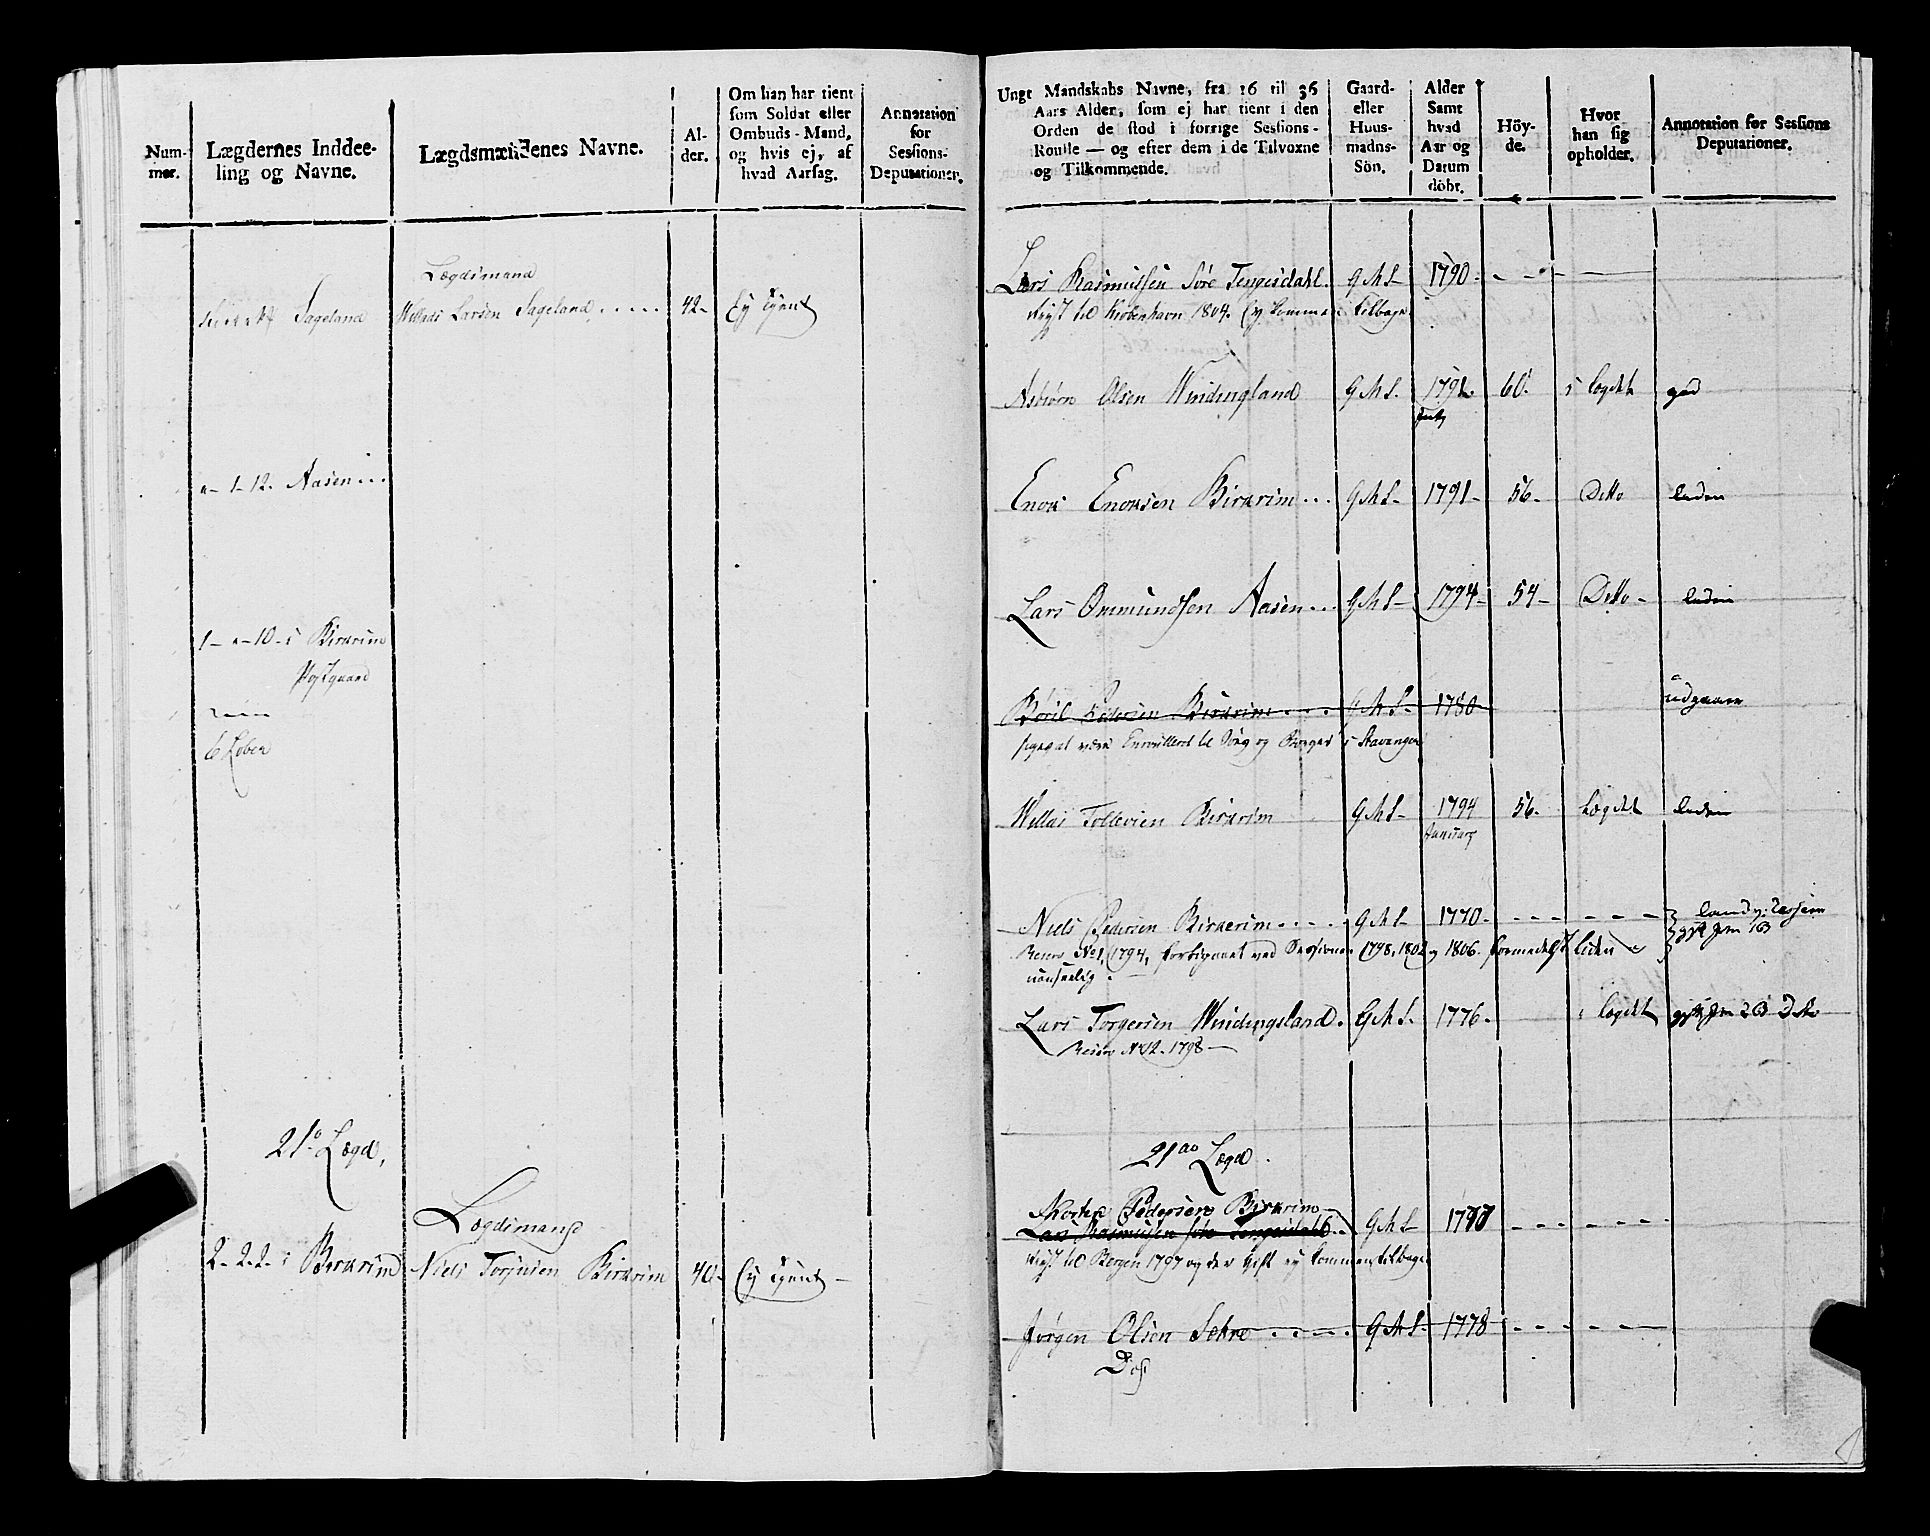 Num-
mer.
Lægdernes Inddee-
ling og Navne.
Lægdsmændenes Navne.
Al-
der.
Om han har tient
som Soldat eller
Ombuds-Mand,
og hvis ej, af
hvad Aarsag.
Annotation
for
Sessions-
Deputationer.
Lægdsmand
Sageland
Larsen Sageland
42-
Ej tjent
1-12. Aasen
10-5 Birkrim
6 Løber
21º Lægd,
Lægdsmand
2-2.2- i Birkrim
Niels Torjusen Birkrim
40-
Ej tjent-
Ungt Mandskabs Navne, fra 16 til 36
Aars Alder, som ej har tient i den
Orden de stod i forrige Sessions-
Roulle — og efter dem i de Tilvoxne
og Tilkommende.
Gaard-
eller
Huus-
mands-
Sön.
Alder
Samt
hvad
Aar og
Datum
döbt.
Höy-
de.
Hvor
han sig
opholder.
Annotation for Sessions
Deputationer.
Lars Rasmussen Søre Tengesdahl. GMS 1790-
Rejst til Kiøbenhavn 1804. Ej kommen tilbage.
Asbiørn Olsen Windingland GMS. 1792. 60. i Lægdet god
Enok Enoksen Birkrim GMS- 1791- 56- Ditto liden
Lars Ommundsen Aasen GMS- 1794- 54- Ditto- liden
Pedersen Birkrim GMS- 1780 udgaaer
siges at være Enrollert til Søes og Borger i Stavanger
Willas Tollevsen Birkrim GMS- 1794 56- Lægdet liden
Januarj
Niels Pedersen Birkerim GMS- 1770-
Reserv No 1, 1794, forbigaaet ved Sessionen 1798, 1802 og 1806. formedelst liden
uanseelig.
Lars Torgersen Windingsland. GMS. 1776. Lægdet
Reserv No 12. 1798
21de Lægd.
Morten Pedersen Birkrim
Lars Rasmussen Søre Tengesdahl GMS- 1770
Rejst til Bergen 1797 og der gift ej kommen tilbage
Jørgen Olsen Sekre GMS. 1778